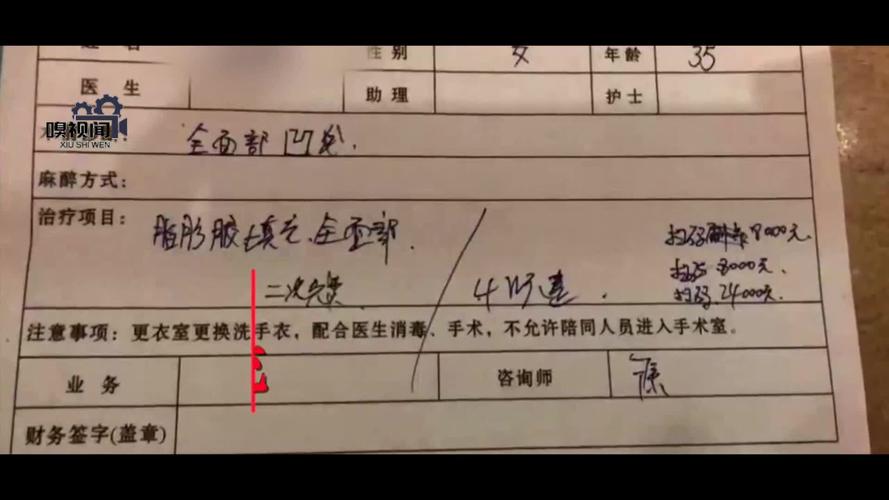 姓名 性别 女 年龄 35
医生 助理 护士
嗅视闻
XIU SHI WEN
全面部凹
麻醉方式：
治疗项目： 脂肪胶填充、全面部
扫码 8000元、
二次免 4 扫码 8000元、
扫码 24000元、
注意事项：更衣室更换洗手衣，配合医生消毒、手术，不允许陪同人员进入手术室。
业务 咨询师
财务签字(盖章)